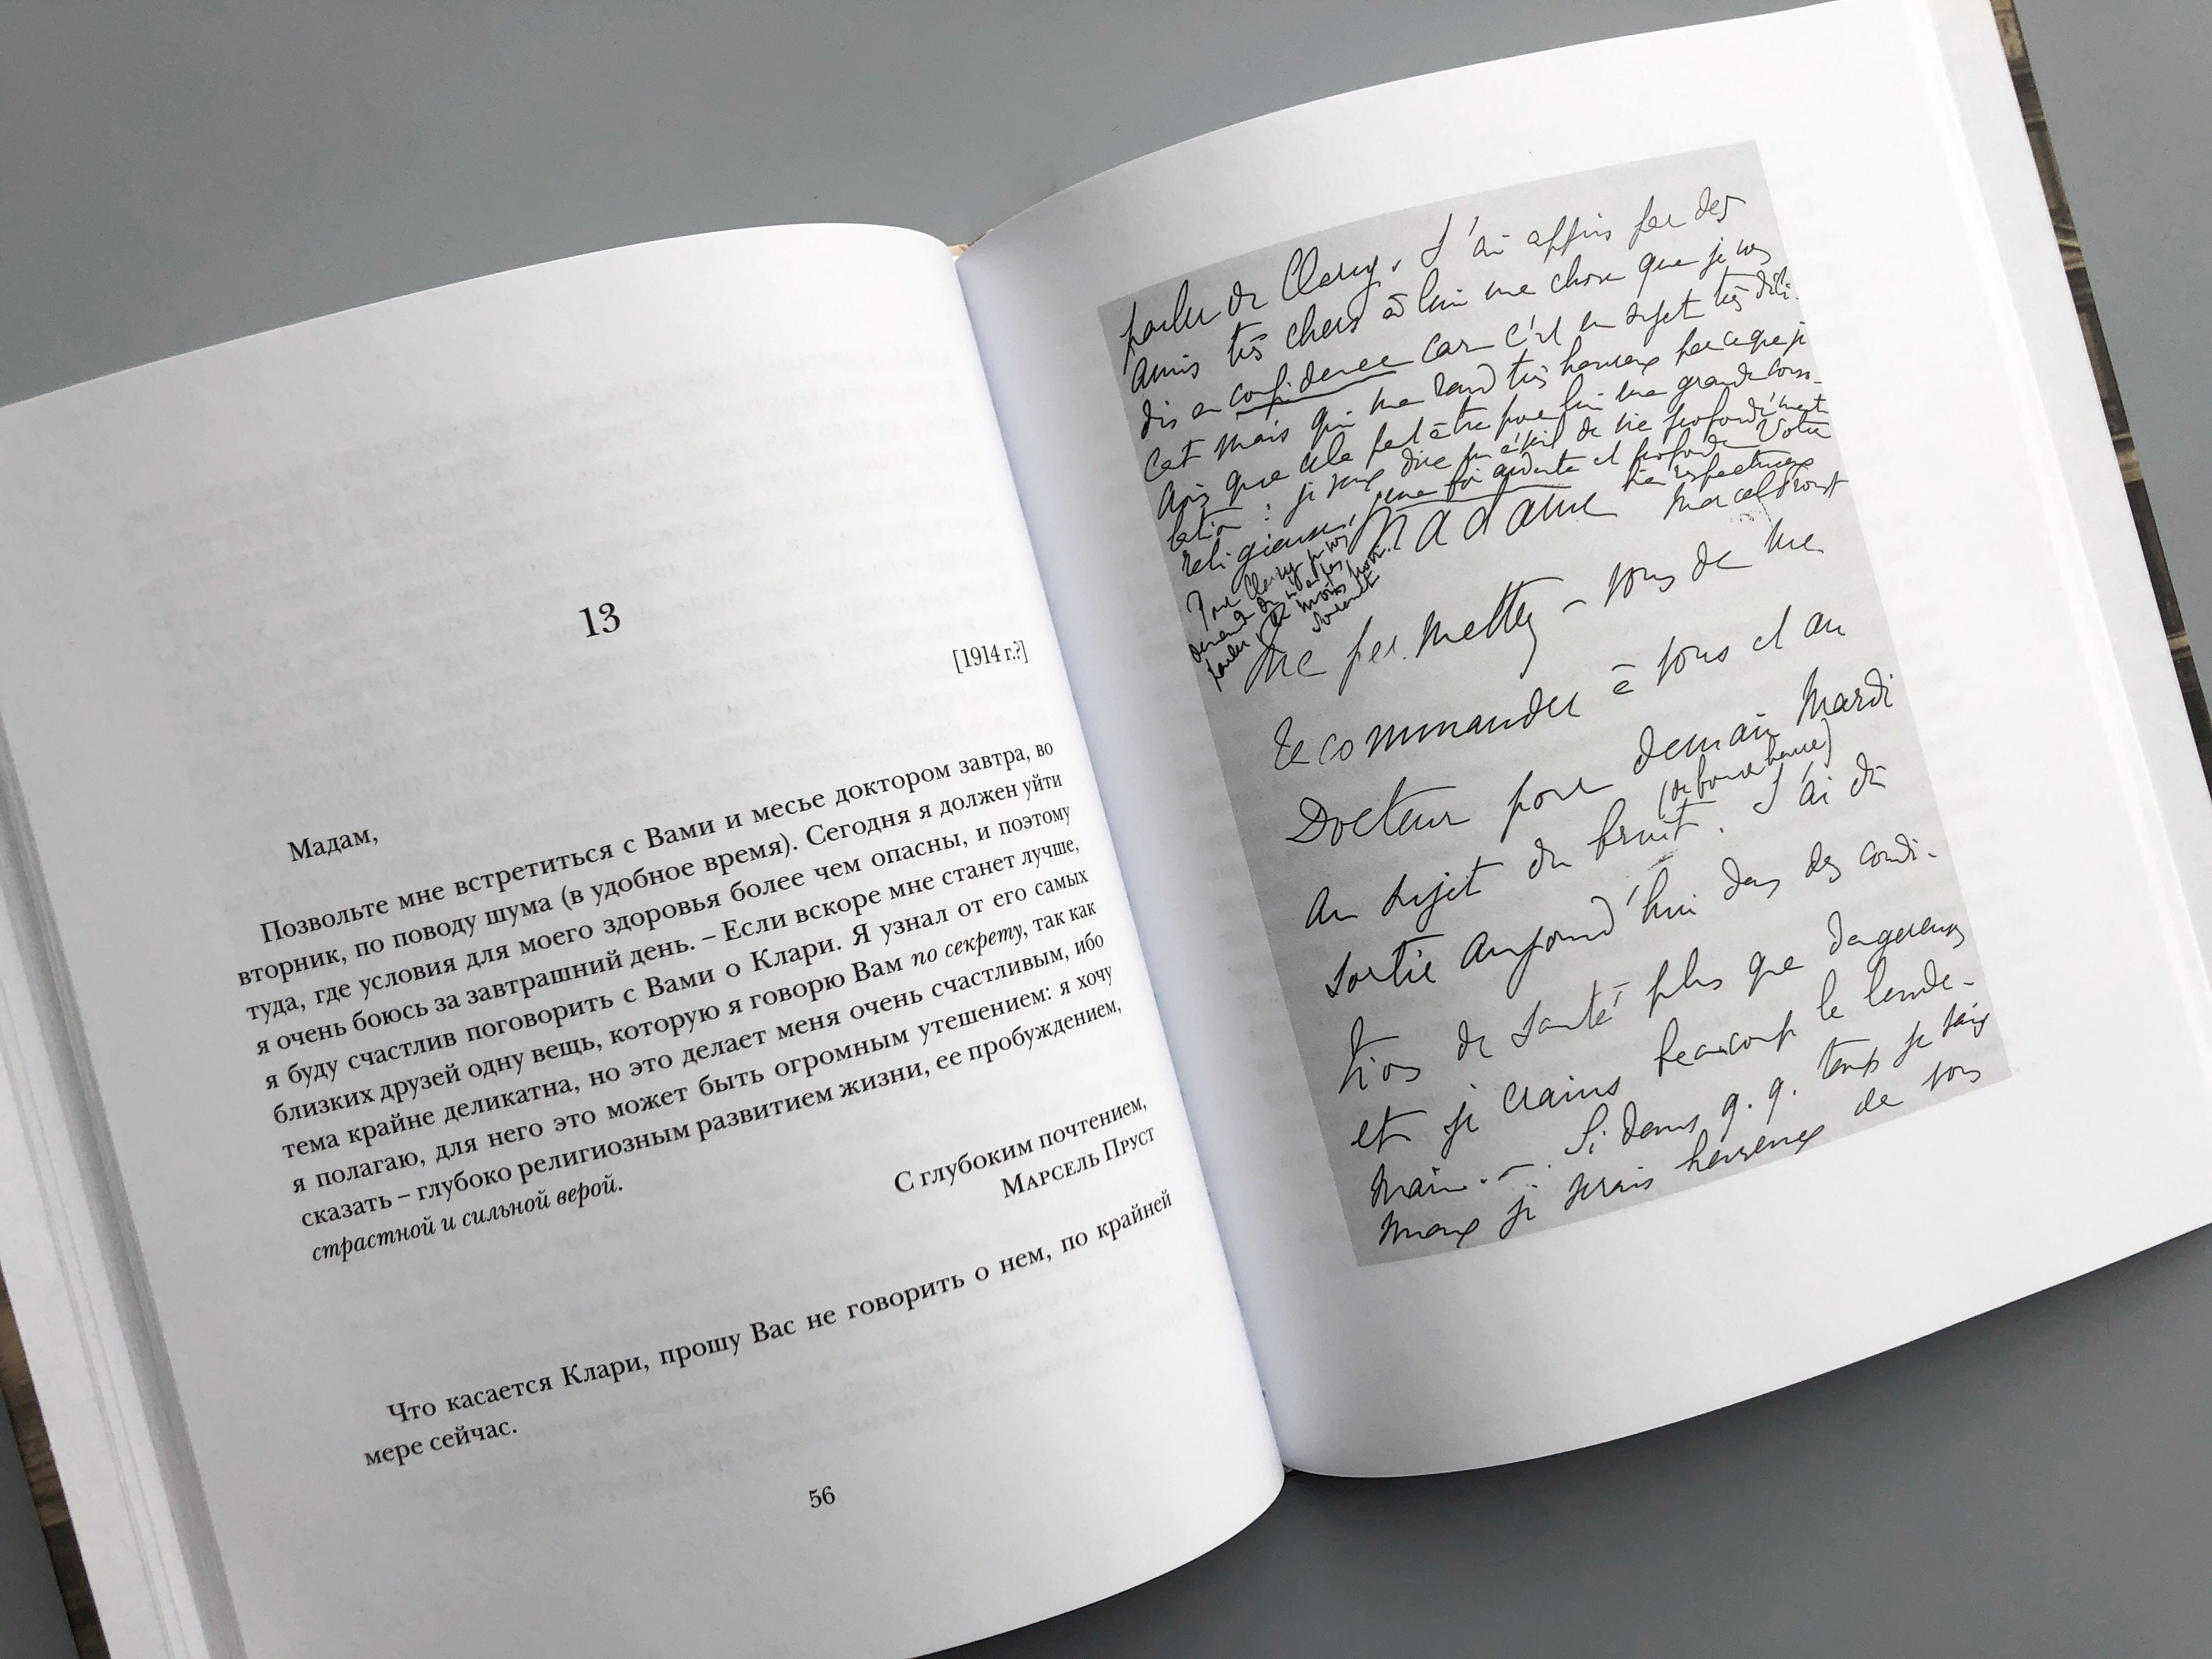 13
[1914 г.?]
Мадам,
Позвольте мне встретиться с Вами и месье доктором завтра, во
вторник, по поводу шума (в удобное время). Сегодня я должен уйти
туда, где условия для моего здоровья более чем опасны, и поэтому
я очень боюсь за завтрашний день. – Если вскоре мне станет лучше,
я буду счастлив поговорить с Вами о Клари. Я узнал от его самых
близких друзей одну вещь, которую я говорю Вам по секрету, так как
тема крайне деликатна, но это делает меня очень счастливым, ибо
я полагаю, для него это может быть огромным утешением: я хочу
сказать – глубоко религиозным развитием жизни, ее пробуждением,
страстной и сильной верой.
С глубоким почтением,
Марсель Пруст
Что касается Клари, прошу Вас не говорить о нем, по крайней
мере сейчас.
56
parler de Clary. J'ai appris par des
amis très chers à lui une chose que je vs
dis en confidence car c'est un sujet très déli-
cat mais qui me rend très heureux parce que je
crois que cela peut être pour lui une grande conso-
lation : je veux dire un éveil de vie profondément
religieuse, une foi ardente et profonde Votre
très respectueux
Marcel Proust
Pour Clary je vs
demande de n'en pas
parler, de moins
Madame
me permettez-vous de me
recommander à vous et au
Docteur pour demain Mardi
(de bonne heure)
au sujet du bruit. J'ai dû
sortir aujourd'hui dans des condi-
tions de santé plus que dangereuses
et je crains beaucoup le lende-
main. – . Si dans q.q. temps je suis
mieux je serais heureux de vous